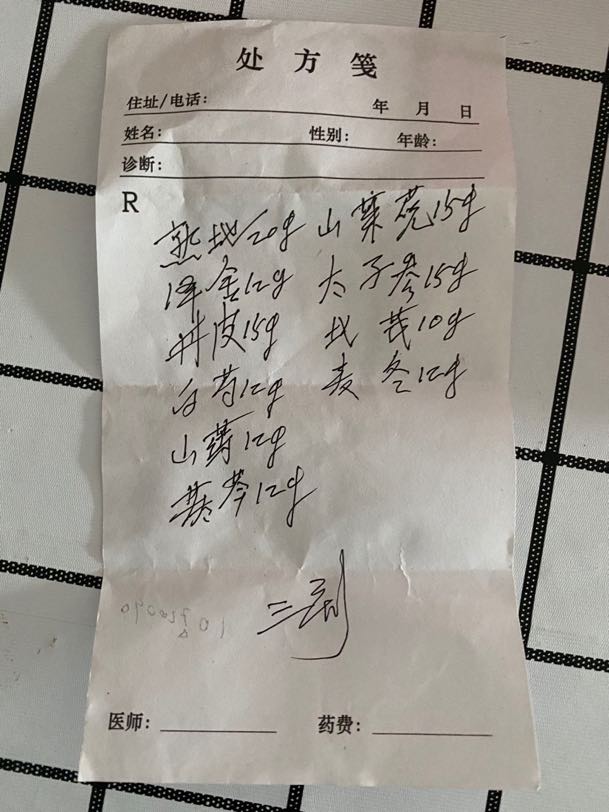 处方笺
住址/电话: 年 月 日
姓名: 性别: 年龄:
诊断:
R
熟地20g 山茱萸15g
泽舍12g 太子参15g
丹皮15g 北芪10g
白芍12g 麦冬12g
山药12g
黄芩12g
三剂
医师: 药费: